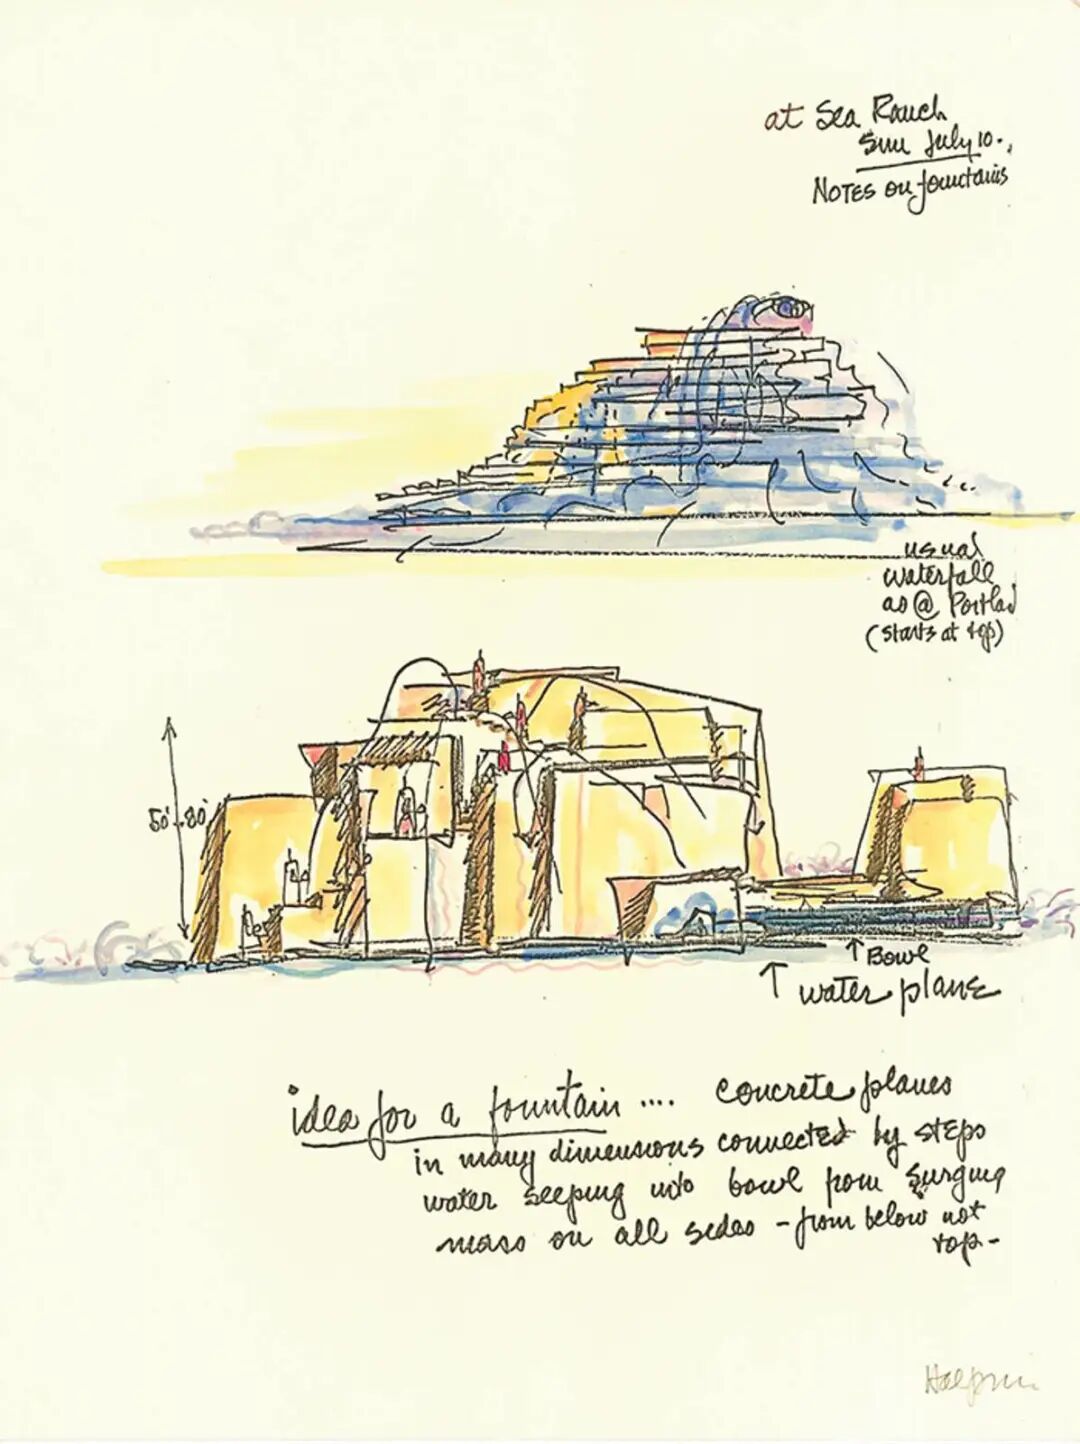 at Sea Ranch
Sun July 10.,
NOTES on fountains
usual
waterfall
as @ Portland
(starts at top)
50'-80'
↑ Bowl
↑ water plane
idea for a fountain .... concrete planes
in many dimensions connected by steps
water seeping into bowl from surging
mass on all sides - from below not
top -
Halprin